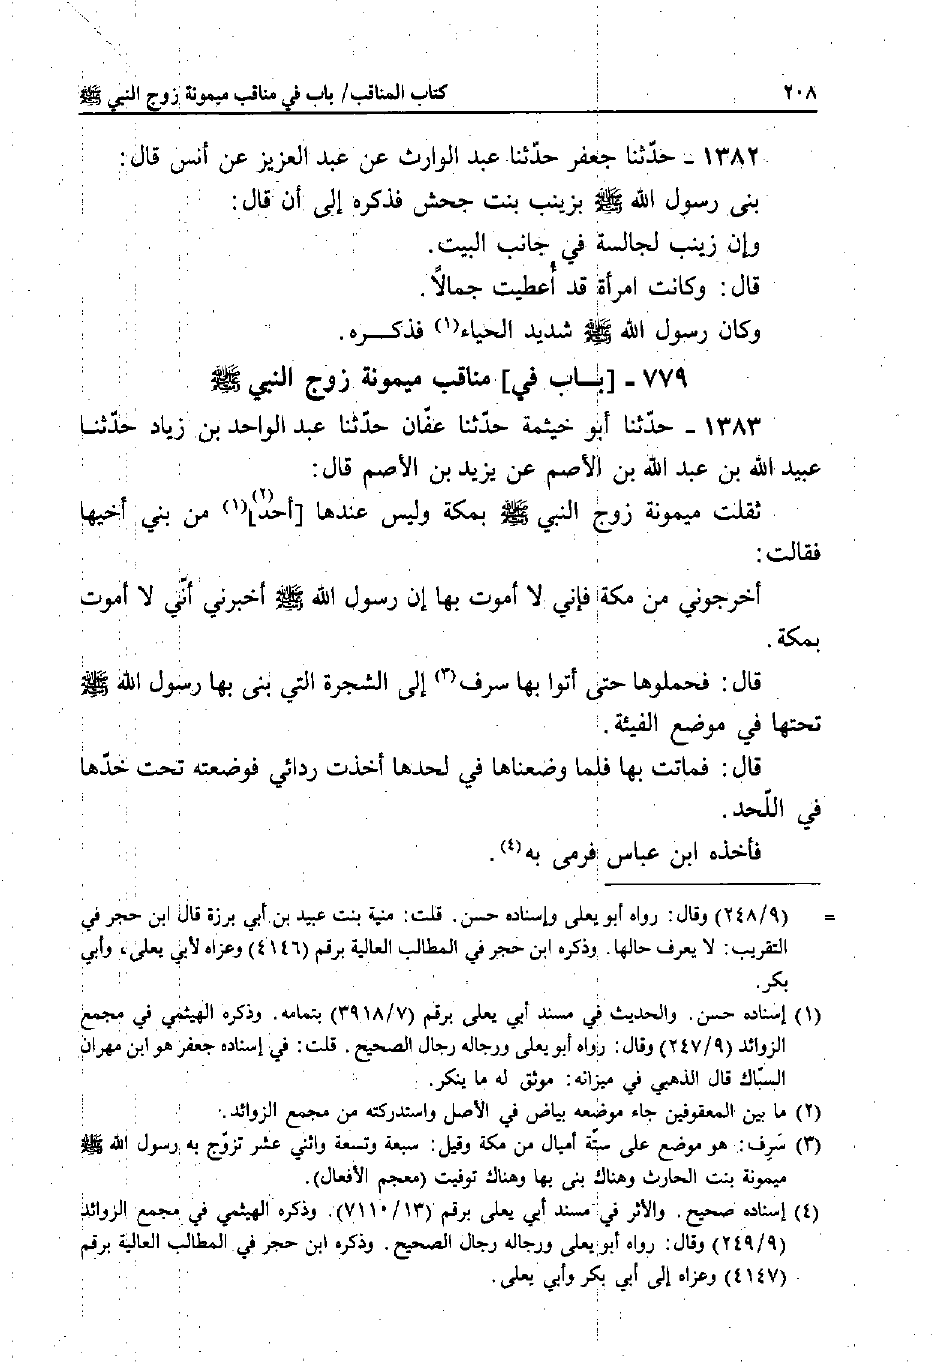 ٢٠٨ كتاب المناقب/ باب في مناقب ميمونة زوج النبي ﷺ
١٣٨٢ ـ حدّثنا جعفر حدّثنا عبد الوارث عن عبد العزيز عن أنس قال:
بنى رسول الله ﷺ بزينب بنت جحش فذكره إلى أن قال:
وإن زينب لجالسة في جانب البيت.
قال: وكانت امرأة قد أُعطيت جمالاً.
وكان رسول الله ﷺ شديد الحياء(١) فذكـــره.
٧٧٩ ـ [بــاب في] مناقب ميمونة زوج النبي ﷺ
١٣٨٣ ـ حدّثنا أبو خيثمة حدّثنا عفّان حدّثنا عبد الواحد بن زياد حدّثنــا
عبيد الله بن عبد الله بن الأصم عن يزيد بن الأصم قال:
ثقلت ميمونة زوج النبي ﷺ بمكة وليس عندها [أحد](٢)(١) من بني أخيها
فقالت:
أخرجوني من مكة فإني لا أموت بها إن رسول الله ﷺ أخبرني أنّي لا أموت
بمكة.
قال: فحملوها حتى أتوا بها سرف(٣) إلى الشجرة التي بنى بها رسول الله ﷺ
تحتها في موضع الفيئة.
قال: فماتت بها فلما وضعناها في لحدها أخذت ردائي فوضعته تحت خدّها
في اللّحد.
فأخذه ابن عباس فرمى به(٤).
= (٢٤٨/٩) وقال: رواه أبو يعلى وإسناده حسن. قلت: منية بنت عبيد بن أبي برزة قال ابن حجر في
التقريب: لا يعرف حالها. وذكره ابن حجر في المطالب العالية برقم (٤١٤٦) وعزاه لأبي يعلى، وأبي
بكر.
(١) إسناده حسن. والحديث في مسند أبي يعلى برقم (٣٩١٨/٧) بتمامه. وذكره الهيثمي في مجمع
الزوائد (٢٤٧/٩) وقال: رواه أبو يعلى ورجاله رجال الصحيح. قلت: في إسناده جعفر هو ابن مهران
السبّاك قال الذهبي في ميزانه: موثق له ما ينكر.
(٢) ما بين المعقوفين جاء موضعه بياض في الأصل واستدركته من مجمع الزوائد.
(٣) سَرِف: هو موضع على ستّة أميال من مكة وقيل: سبعة وتسعة واثني عشر تزوّج به رسول الله ﷺ
ميمونة بنت الحارث وهناك بنى بها وهناك توفيت (معجم الأفعال).
(٤) إسناده صحيح. والأثر في مسند أبي يعلى برقم (٧١١٠/١٣). وذكره الهيثمي في مجمع الزوائد
(٢٤٩/٩) وقال: رواه أبو يعلى ورجاله رجال الصحيح. وذكره ابن حجر في المطالب العالية برقم
(٤١٤٧) وعزاه إلى أبي بكر وأبي يعلى.